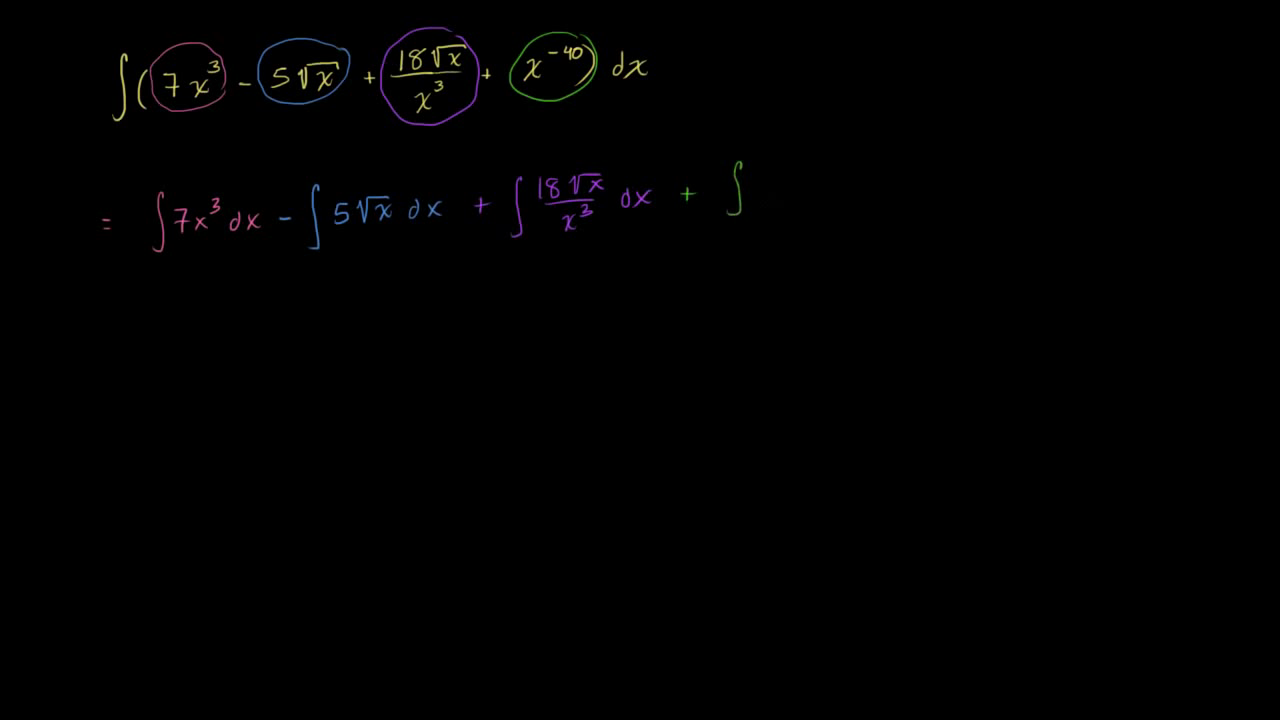 ∫(7x³ - 5√x + 18√x/x³ + x⁻⁴⁰) dx
= ∫7x³ dx - ∫5√x dx + ∫18√x/x³ dx + ∫